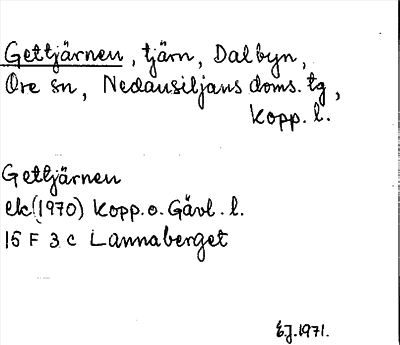 Gettjärnen, tjärn, Dalbyn,
Ore sn, Nedansiljans doms. tg,
Kopp. l.
Gettjärnen
ek (1970) Kopp. o. Gävl. l.
15 F 3 c Lannaberget
E.J. 1971.